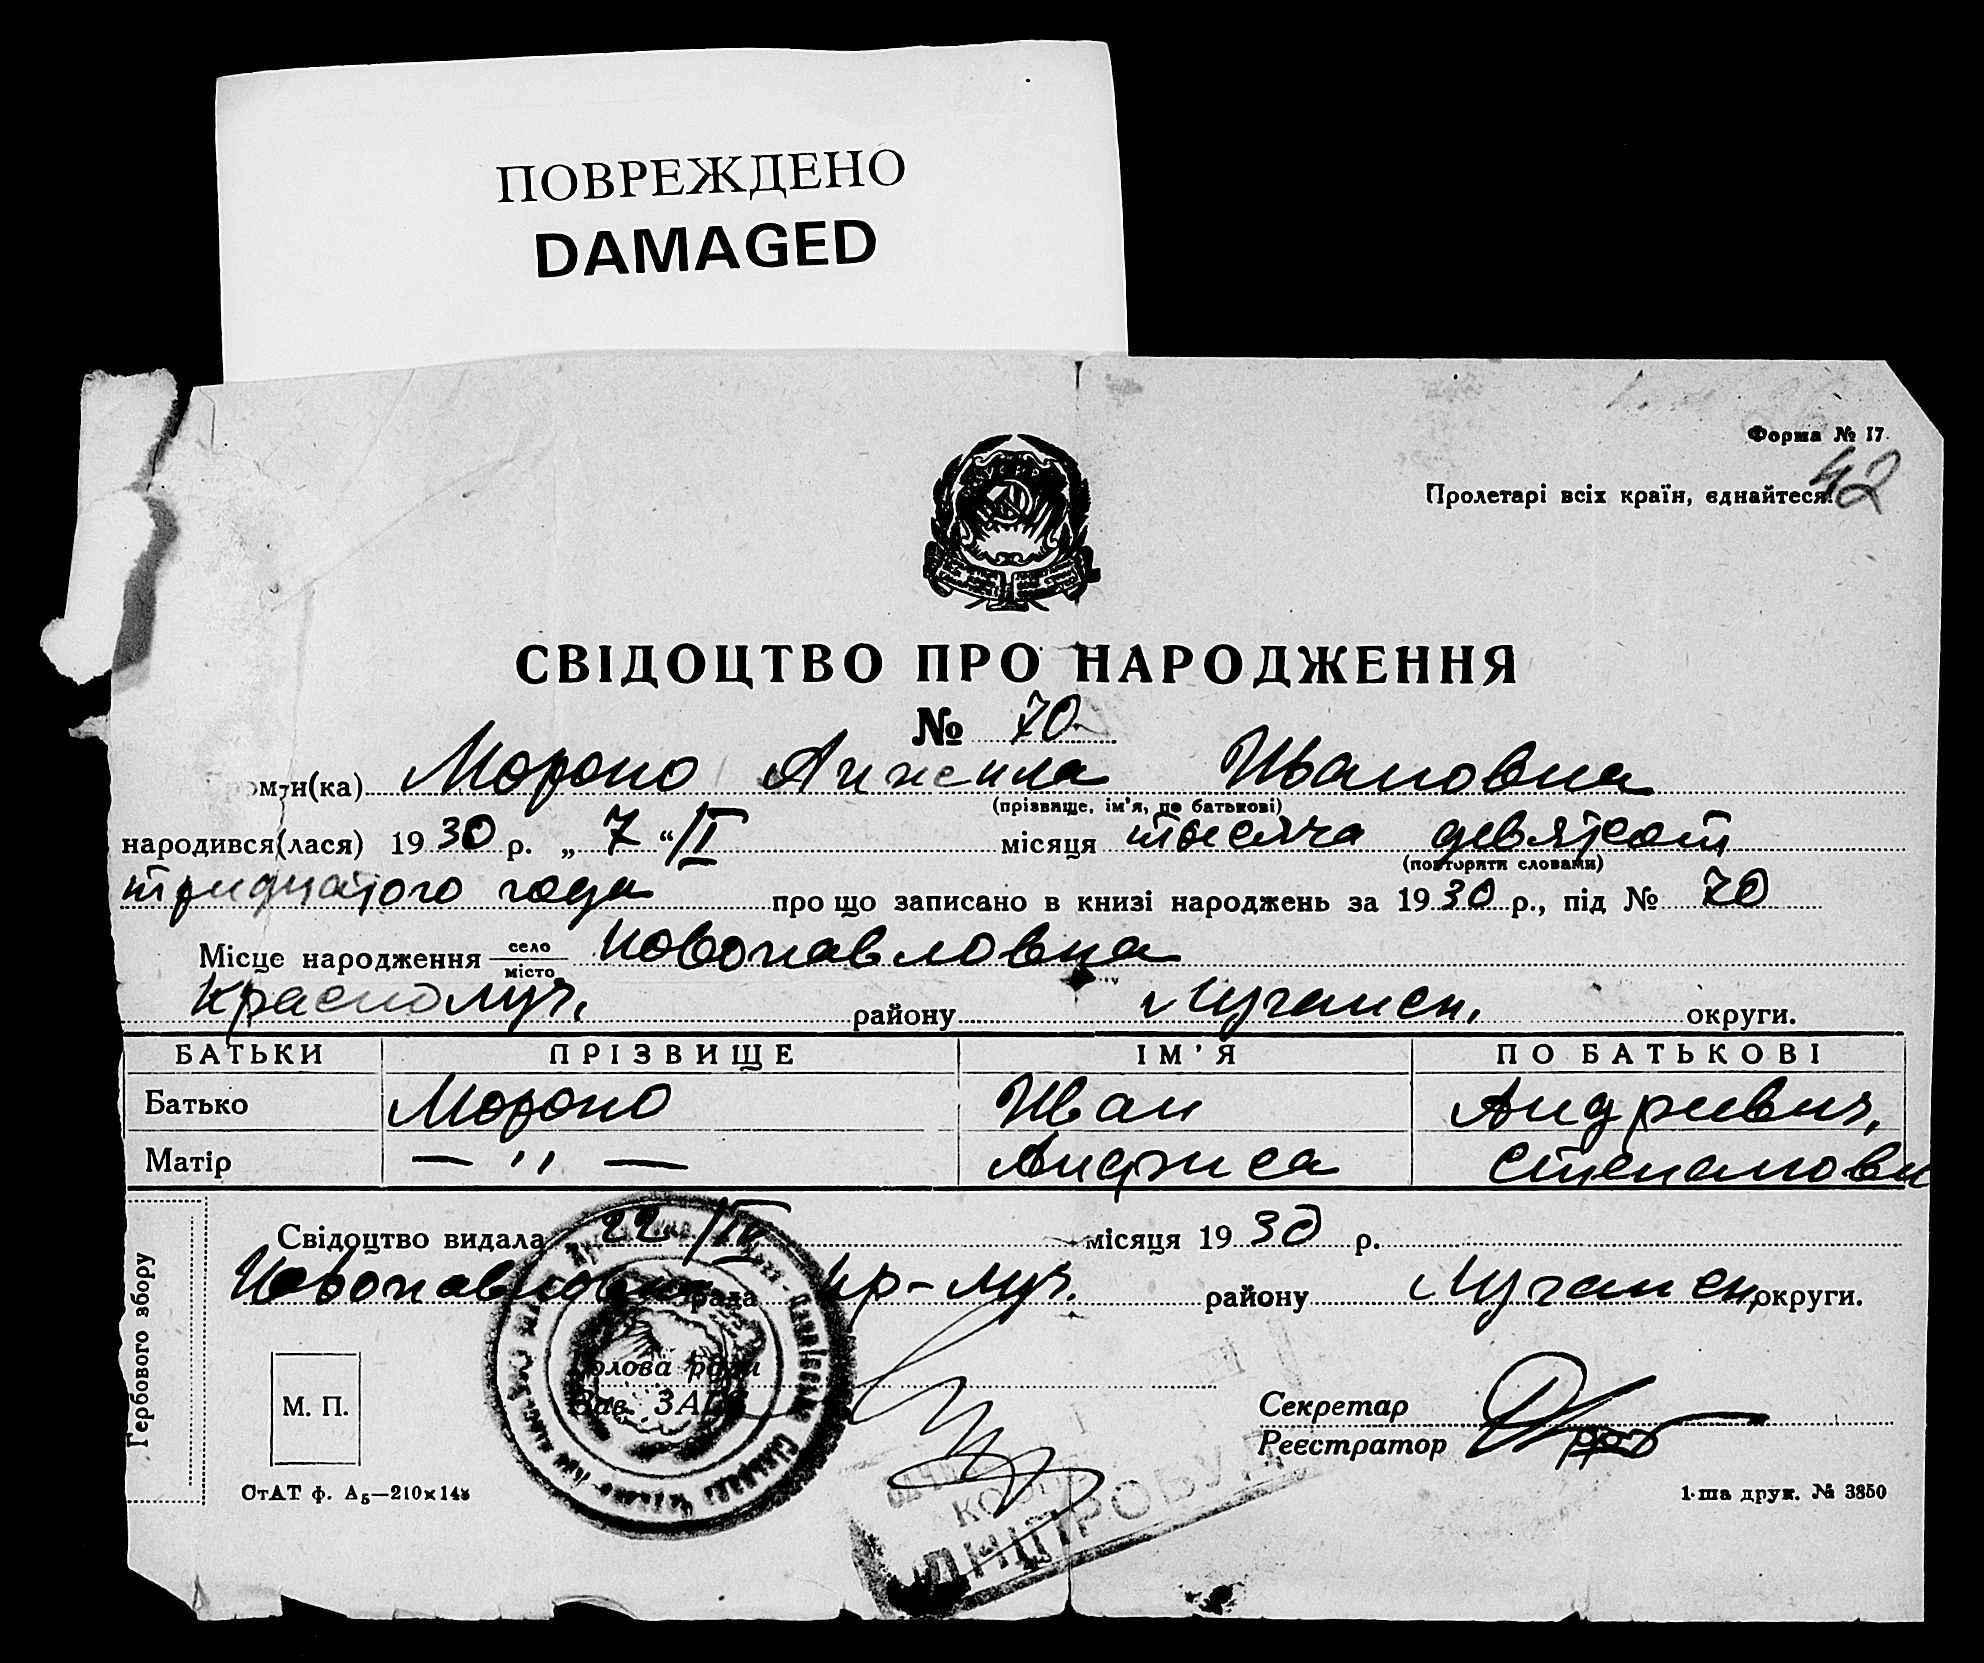 ПОВРЕЖДЕНО
DAMAGED
Форма № 17
42
Пролетарі всіх країн, єднайтеся!
СВІДОЦТВО ПРО НАРОДЖЕННЯ
№ 70
ом-н(ка) Мороко Анжела Ивановна
(прізвище, ім'я, по батькові)
народився(лася) 1930 р. „ 7 “ /II місяця тысяча девятсот
(повторити словами)
тридцатого года про що записано в книзі народжень за 1930 р., під № 70
Місце народження село
місто Новопавловка
Краснолуч. району Луганск. округи.
БАТЬКИ ПРІЗВИЩЕ ІМ'Я ПО БАТЬКОВІ
Батько Мороко Иван Андриевич,
Матір — " — Анфиса Степановн
Свідоцтво видала 22 /IV місяця 1930 р.
Новопавловка рада Кр-луч. району Луганск. округи.
Гербового збору
М. П.
Голова ради
Зав. ЗАГС
Секретар
Реєстратор
СтАТ ф. А₅—210×148
1-ша друк. № 3850
ДНІПРОБУД